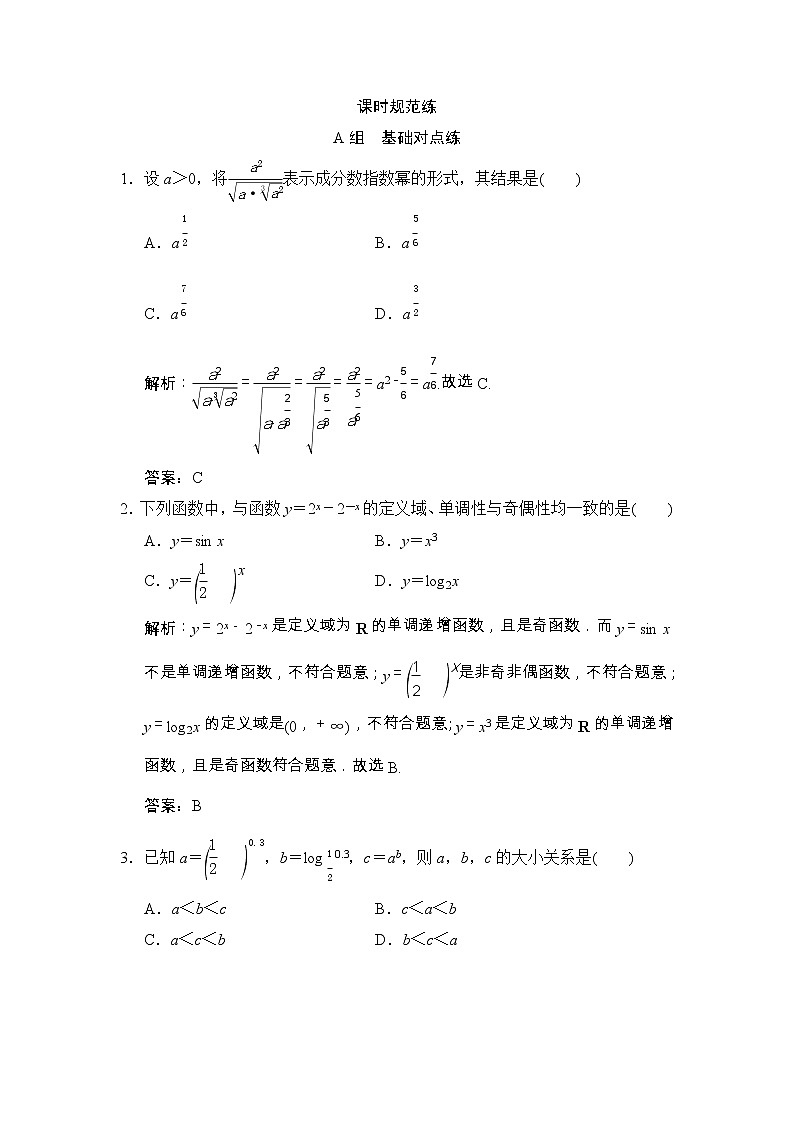 课时规范练
A组　基础对点练
1．设a＞0，将\frac{a^2}{\sqrt{a·\sqrt[3]{a^2}}}表示成分数指数幂的形式，其结果是(　　)
A．a^{\frac{1}{2}}　　B．a^{\frac{5}{6}}
C．a^{\frac{7}{6}}　　D．a^{\frac{3}{2}}
解析：\frac{a^2}{\sqrt{a·\sqrt[3]{a^2}}}＝\frac{a^2}{\sqrt{a·a^{\frac{2}{3}}}}＝\frac{a^2}{\sqrt{a^{\frac{5}{3}}}}＝\frac{a^2}{a^{\frac{5}{6}}}＝a^{2－\frac{5}{6}}＝a^{\frac{7}{6}}.故选C.
答案：C
2．下列函数中，与函数y＝2^x－2^{－x}的定义域、单调性与奇偶性均一致的是(　　)
A．y＝sin x　　B．y＝x^3
C．y＝(\frac{1}{2})^x　　D．y＝log_2x
解析：y＝2^x－2^{－x}是定义域为R的单调递增函数，且是奇函数．而y＝sin x
不是单调递增函数，不符合题意；y＝(\frac{1}{2})^x是非奇非偶函数，不符合题意；
y＝log_2x的定义域是(0，＋∞)，不符合题意；y＝x^3是定义域为R的单调递增
函数，且是奇函数符合题意．故选B.
答案：B
3．已知a＝(\frac{1}{2})^{0.3}，b＝log_{\frac{1}{2}}0.3，c＝a^b，则a，b，c的大小关系是(　　)
A．a＜b＜c　　B．c＜a＜b
C．a＜c＜b　　D．b＜c＜a